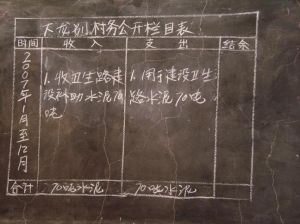 下龙别村务公开栏目表
时间 收入 支出 结余
2007年1月至12月
1.收卫生路建
设补助水泥70
吨
1.用于建设卫生
路水泥70吨
合计 70吨水泥 70吨水泥